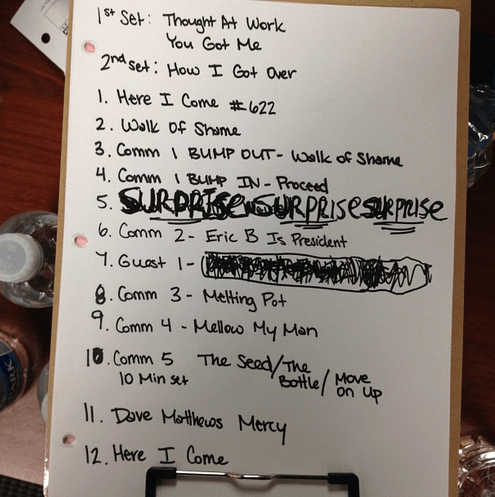 1st Set: Thought At Work
You Got Me
2nd set: How I Got Over
1. Here I Come #622
2. Walk Of Shame
3. Comm 1 BUMP OUT - Walk of Shame
4. Comm 1 BUMP IN - Proceed
5. SURPRISE SURPRISE SURPRISE
6. Comm 2 - Eric B Is President
7. Guest 1 -
8. Comm 3 - Melting Pot
9. Comm 4 - Mellow My Man
10. Comm 5 The Seed/The
10 Min set Bottle/Move
on Up
11. Dave Matthews Mercy
12. Here I Come